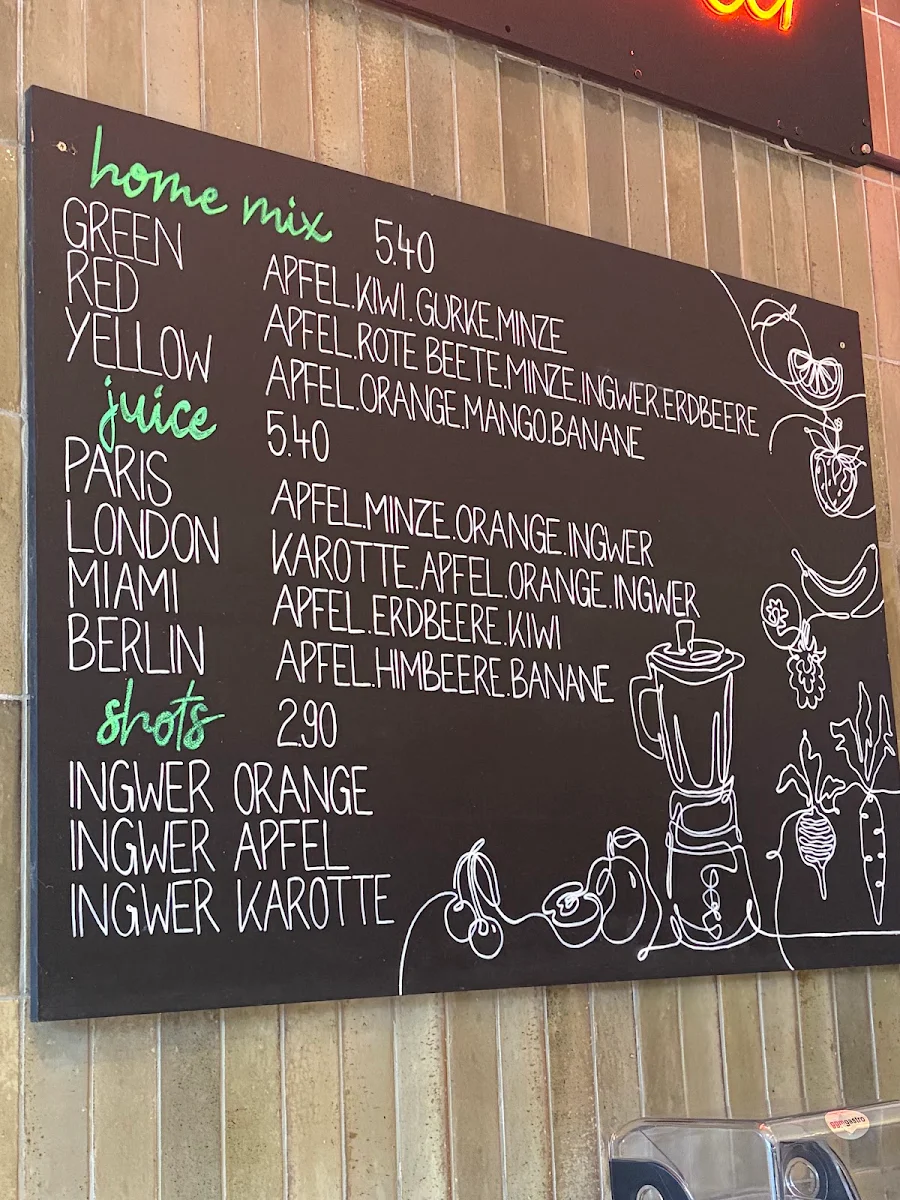 home mix 5.40
GREEN APFEL.KIWI.GURKE.MINZE
RED APFEL.ROTE BEETE.MINZE.INGWER.ERDBEERE
YELLOW APFEL.ORANGE.MANGO.BANANE
juice 5.40
PARIS APFEL.MINZE.ORANGE.INGWER
LONDON KAROTTE.APFEL.ORANGE.INGWER
MIAMI APFEL.ERDBEERE.KIWI
BERLIN APFEL.HIMBEERE.BANANE
shots 2.90
INGWER ORANGE
INGWER APFEL
INGWER KAROTTE
ggmgastro